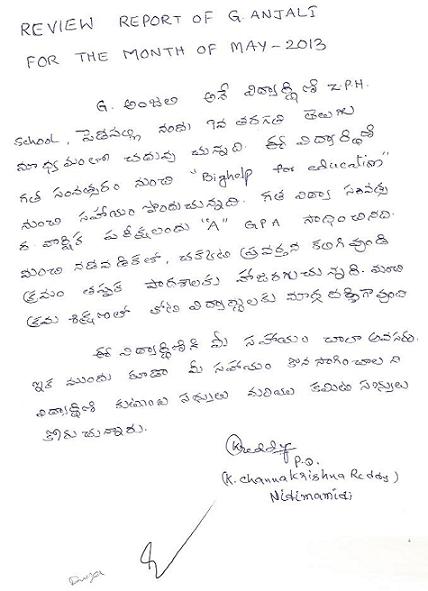 REVIEW REPORT OF G. ANJALI
FOR THE MONTH OF MAY-2013
G. అంజలి అనే విద్యార్థిణి Z.P.H.
School, పెడపల్లి నందు 9వ తరగతి తెలుగు
మాధ్యమంలో చదువు చున్నది. ఈ విద్యార్థిణి
గత సంవత్సరం నుంచి "Bighelp for education"
నుంచి సహాయం పొందుచున్నది. గత విద్యా సంవత్స
ర వార్షిక పరీక్షలందు "A" GPA సాధించినది.
మంచి నడవడికతో, చక్కటి ప్రవర్తన కలిగివుండి
క్రమం తప్పక పాఠశాలకు హాజరగుచున్నది. మంచి
క్రమ శిక్షణతో తోటి విద్యార్థులకు మార్గదర్శిగావుంది
ఈ విద్యార్థిణికి మీ సహాయం చాలా అవసరం.
ఇక ముందు కూడా మీ సహాయం కొనసాగించాలని
విద్యార్థిణి కుటుంబ సభ్యులు మరియు కమిటి సభ్యులు
కోరుచున్నారు.
KReddy
P.O.
(K. Channakrishna Reddy)
Nidimamidi